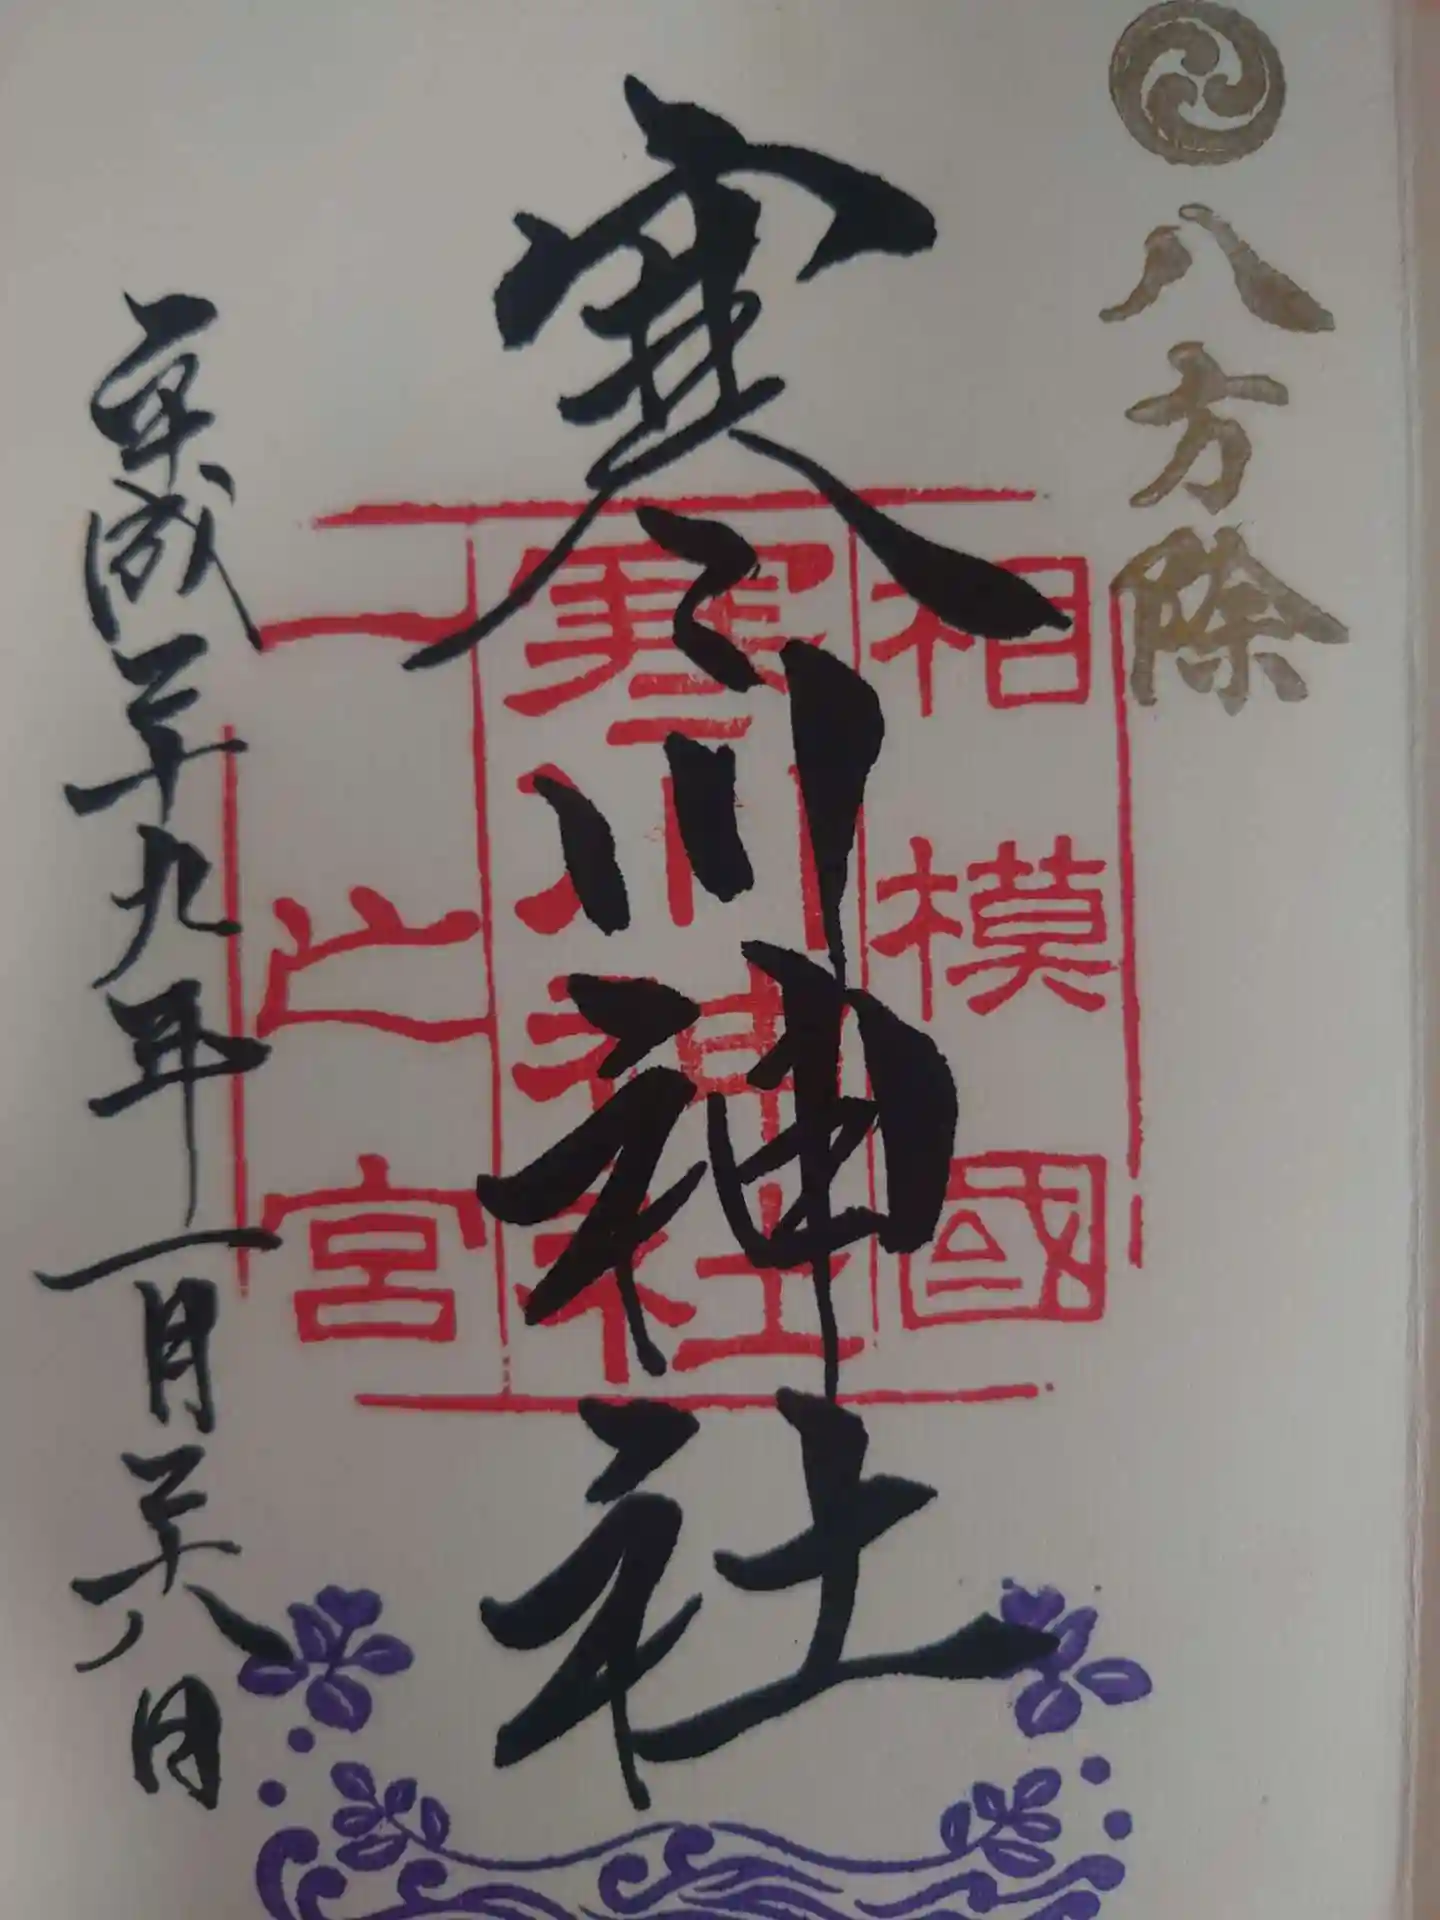 八方除
寒川神社
相模國
寒川神社
一之宮
平成二十九年一月二十八日